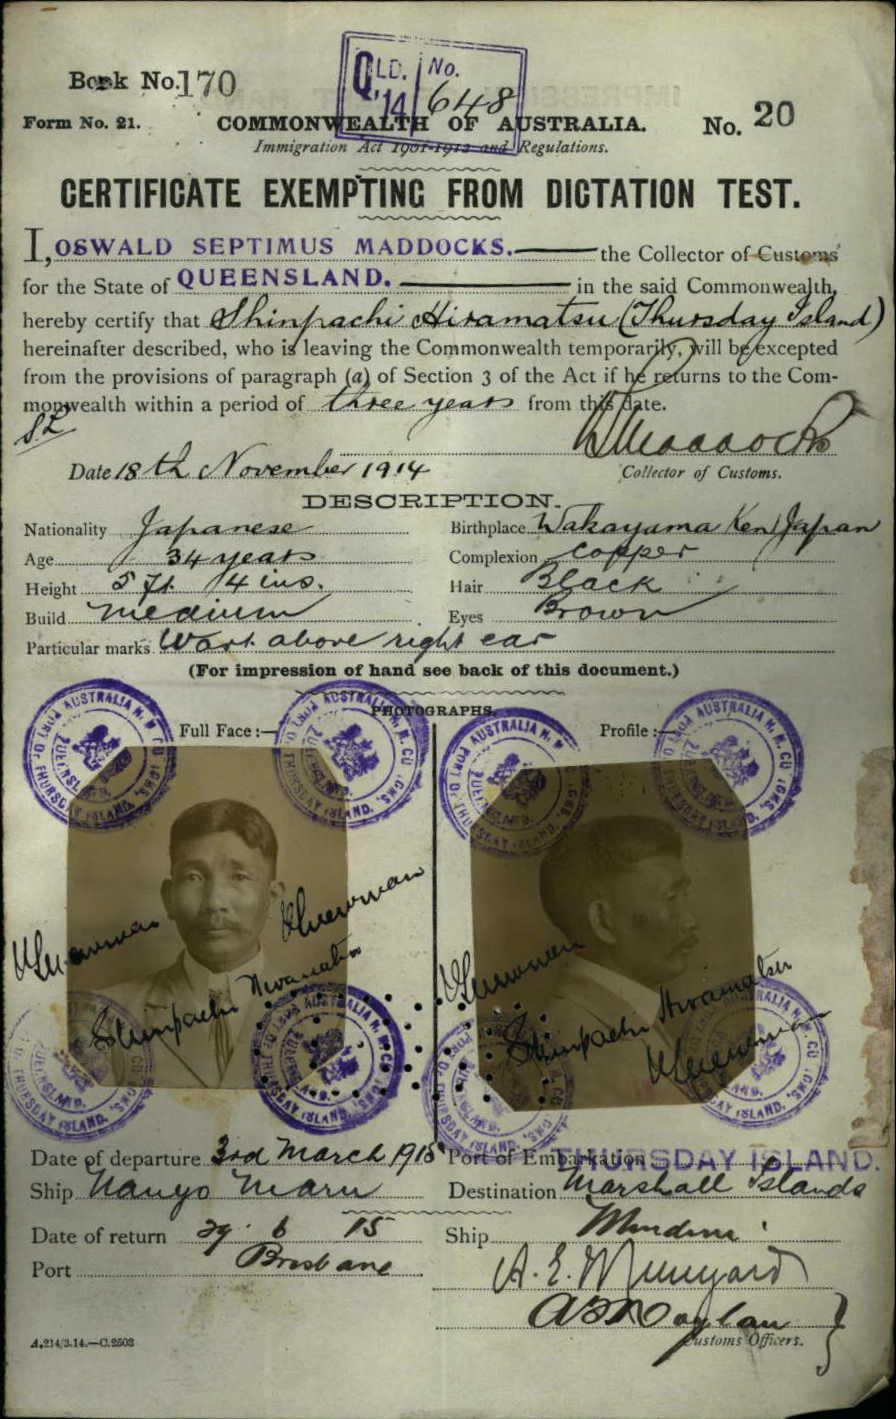 QLD. No.
'14 648
Book No. 170
Form No. 21.
COMMONWEALTH OF AUSTRALIA.
No. 20
Immigration Act 1901-1912 and Regulations.
CERTIFICATE EXEMPTING FROM DICTATION TEST.
I, OSWALD SEPTIMUS MADDOCKS. the Collector of Customs
for the State of QUEENSLAND. in the said Commonwealth,
hereby certify that Shinpachi Hiramatsu (Thursday Island)
hereinafter described, who is leaving the Commonwealth temporarily, will be excepted
from the provisions of paragraph (a) of Section 3 of the Act if he returns to the Com-
monwealth within a period of three years from this date.
Maddocks
Date 18th November 1914
Collector of Customs.
DESCRIPTION.
Nationality Japanese
Birthplace Wakayama Ken Japan
Age 34 years
Complexion Copper
Height 5 ft 4 ins.
Hair Black
Build medium
Eyes Brown
Particular marks Wart above right ear
(For impression of hand see back of this document.)
PHOTOGRAPHS.
Full Face :—
Profile :—
Shinpachi Hiramatsu
Shinpachi Hiramatsu
Date of departure 3rd March 1915
Port of Embarkation THURSDAY ISLAND.
Ship Nanyo Maru
Destination Marshall Islands
Date of return 29. 6 15
Ship
Port Brisbane
Customs Officers.
A.214/3.14.—C.2503